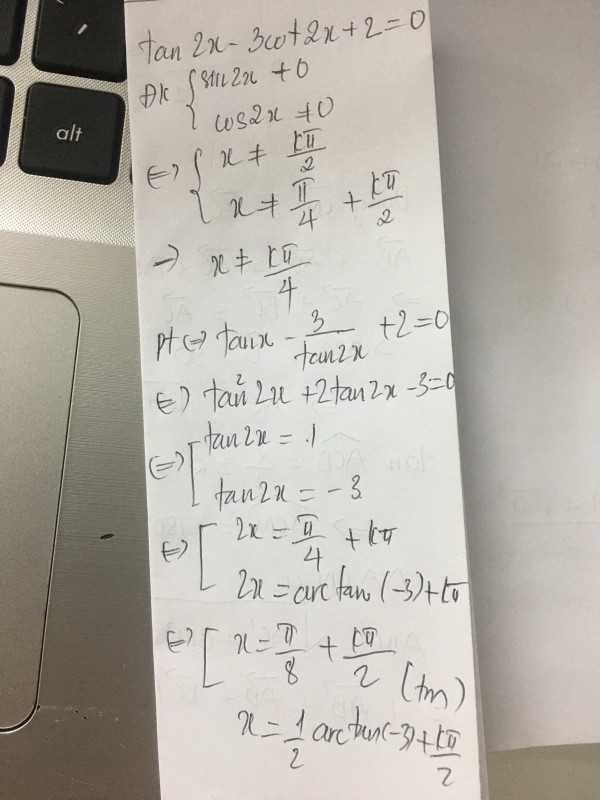 alt
tan 2x - 3cot2x + 2 = 0
ĐK { sin2x ≠ 0
cos2x ≠ 0
⇔ { x ≠ kπ/2
x ≠ π/4 + kπ/2
→ x ≠ kπ/4
Pt ⇔ tanx - 3/tan2x + 2 = 0
⇔ tan² 2x + 2tan2x - 3 = 0
⇔ [ tan2x = 1
tan2x = -3
⇔ [ 2x = π/4 + kπ
2x = arctan(-3) + kπ
⇔ [ x = π/8 + kπ/2
(tm)
x = 1/2 arctan(-3) + kπ/2